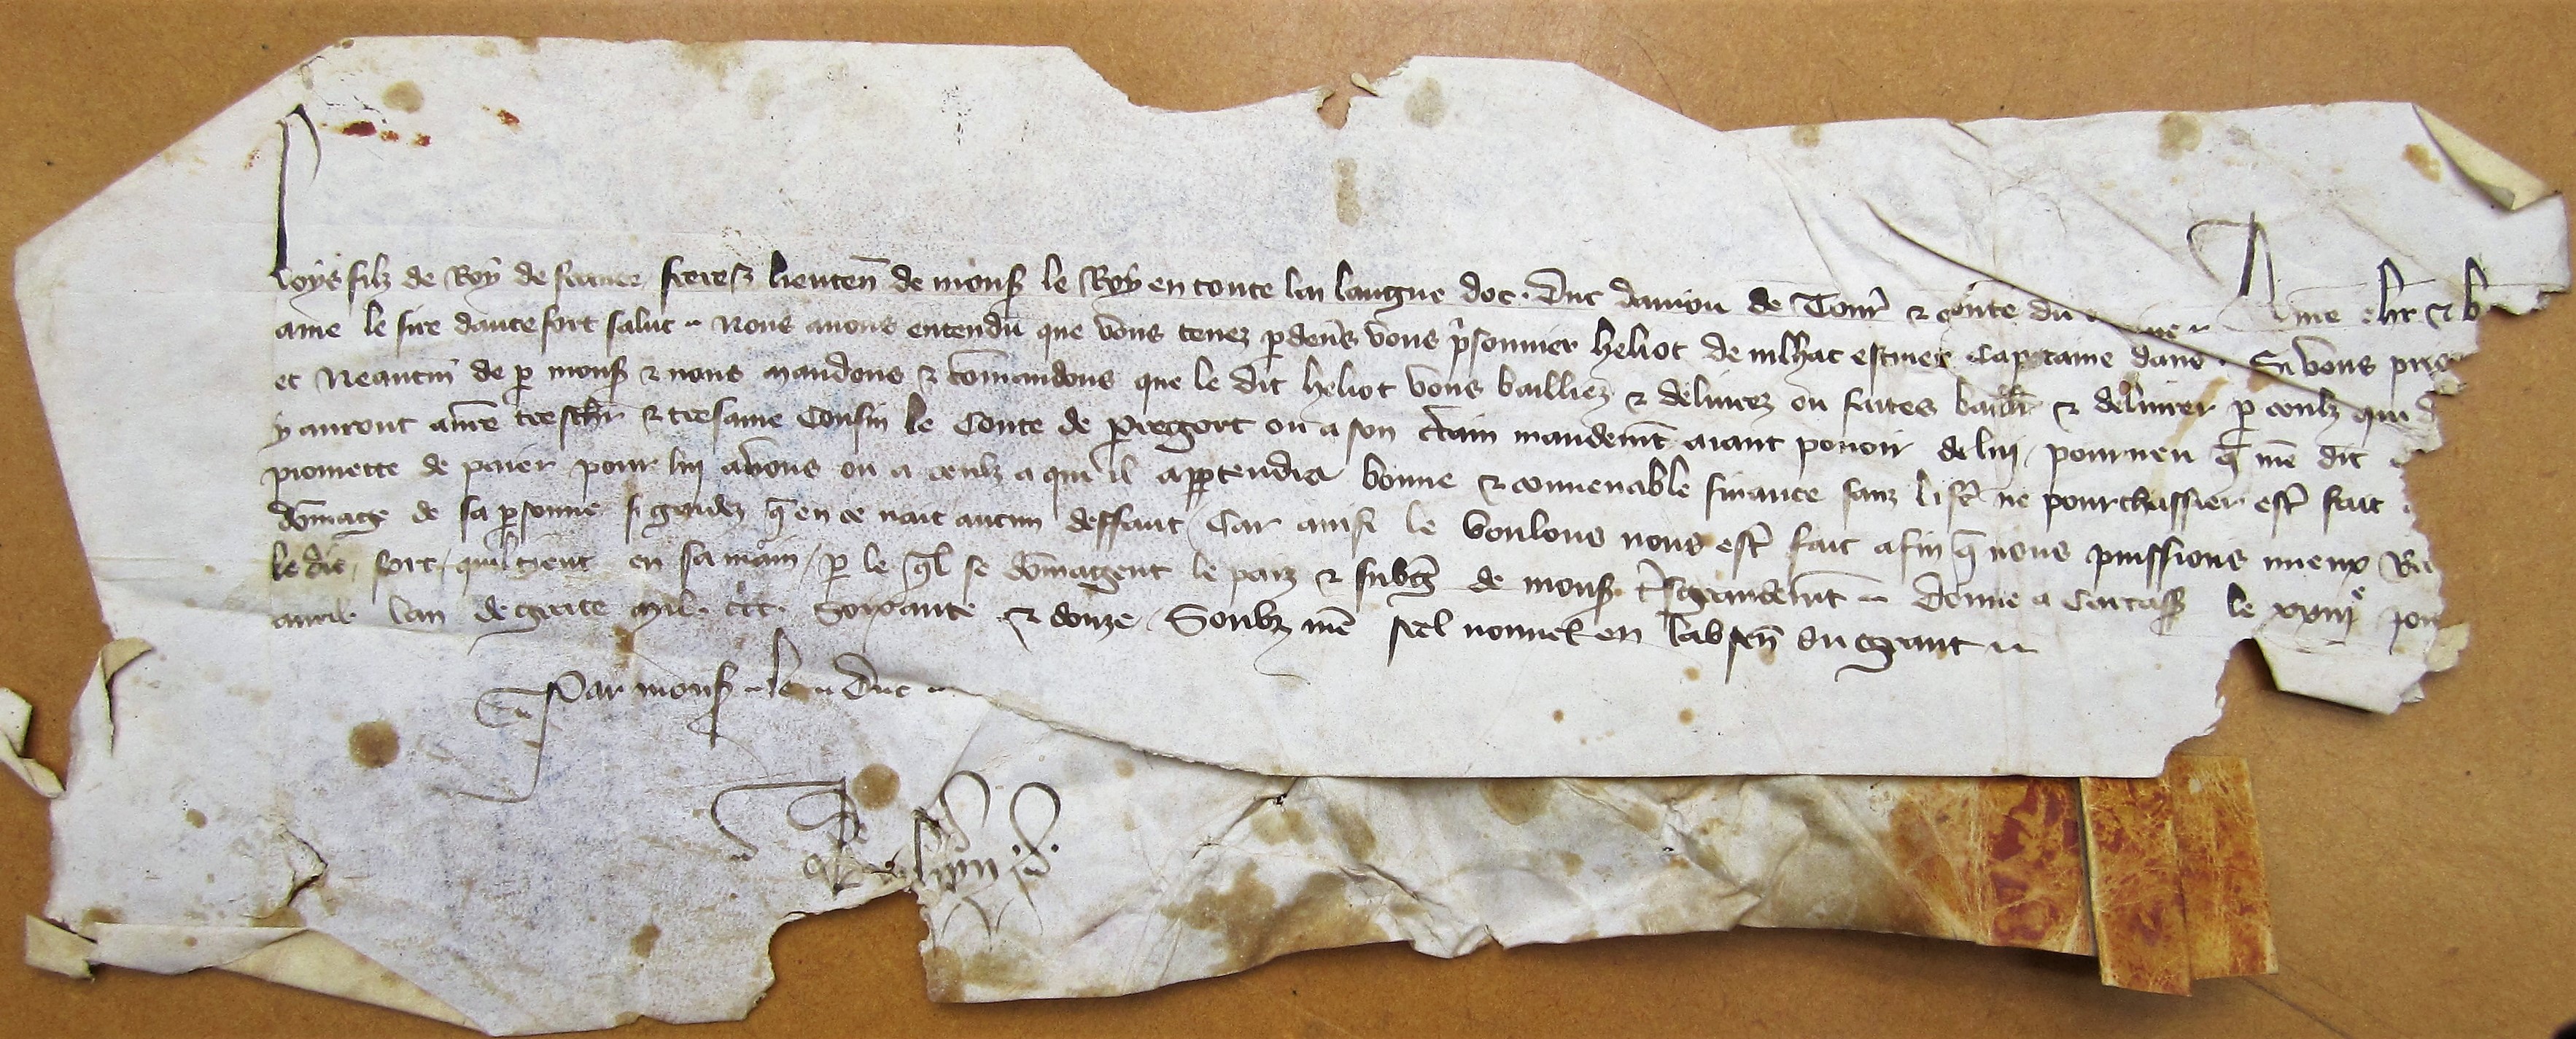 Loys filz de Roy de france freres lieuten de mons le Roy en toute la langue doc. Duc daniou de Tour & conte du A nre chr & b
ame le sire dautefort salut Nous auons entendu que vous tenez p deuers vous prsonnier heliot de milhac escuier Capitaine dano Si vous pri
et Neantm de p mons & nous mandons & comandons que le dit heliot vous bailliez & deliurez ou faites bailler & deliurer p ceulx qui
y auront a nre treschr & tresame Cousin le Conte de Pieregort ou a son certain mandemt aiant pouoir de lui, pourueu q nre dit
promette de paier pour lui a vous ou a ceulx a qui il appartendra bonne & conuenable finance sanz ne pourchassier estr fait
domage de sa psonne si gardez q en ce nait aucun deffaut, Car ainsi le voulons nous estr fait afin q nous puissions mieux
le dit, fort, quil tient en sa main, p le ql se domagent le pais & subgz de mons tresgrandemt Donne a Carcass le xxiiije jou
auril lan de grace mil. ccc. soixante & douze, Soubz nre seel nouuel en labsen du grant
Par mons le Duc
De